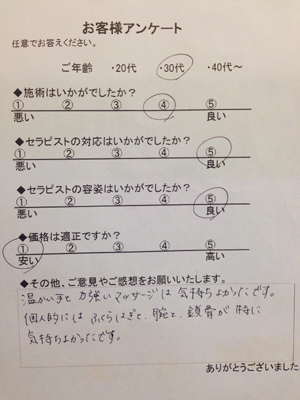 お客様アンケート
任意でお答えください。
ご年齢 ・20代 ・30代 ・40代～
◆施術はいかがでしたか？
① ② ③ ④ ⑤
悪い 良い
◆セラピストの対応はいかがでしたか？
① ② ③ ④ ⑤
悪い 良い
◆セラピストの容姿はいかがでしたか？
① ② ③ ④ ⑤
悪い 良い
◆価格は適正ですか？
① ② ③ ④ ⑤
安い 高い
◆その他、ご意見やご感想をお願いいたします。
温かい手と力強いマッサージは気持ちよかったです。
個人的にはふくらはぎと、腕と、鎖骨が特に
気持ちよかったです。
ありがとうございました